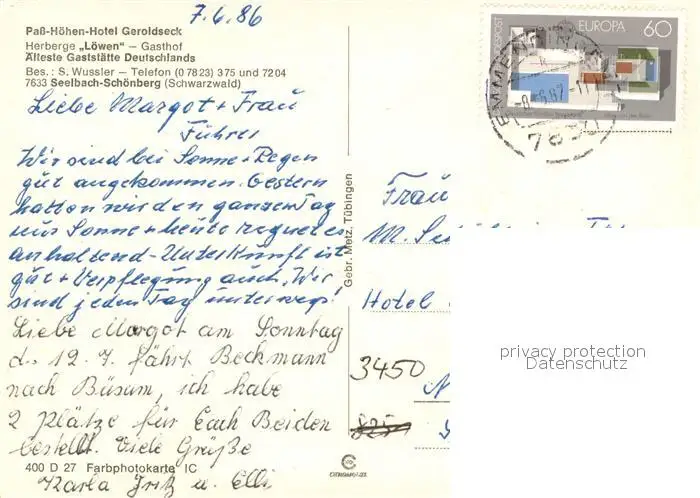 7.6.86
Paß-Höhen-Hotel Geroldseck
Herberge „Löwen" – Gasthof
Älteste Gaststätte Deutschlands
Bes.: S. Wussler – Telefon (0 78 23) 3 75 und 72 04
7633 Seelbach-Schönberg (Schwarzwald)
Liebe Margot + Frau
Führer
Wir sind bei Sonne + Regen
gut angekommen. Gestern
hatten wir den ganzen Tag
nur Sonne + heute regnet es
anhaltend – Unterkunft ist
gut + Verpflegung auch, Wir
sind jeden Tag unterwegs!
Liebe Margot am Sonntag
d. 12. 7. fährt Beckmann
nach Büsum, ich habe
2 Plätze für Euch Beiden
bestellt. Viele Grüße
400 D 27 Farbphotokarte IC
Karla Fritz u. Elli
Gebr. Metz, Tübingen
BUNDESPOST
EUROPA 60
EMMENDINGEN
783
Frau
M.
Hotel
3450
privacy protection
Datenschutz